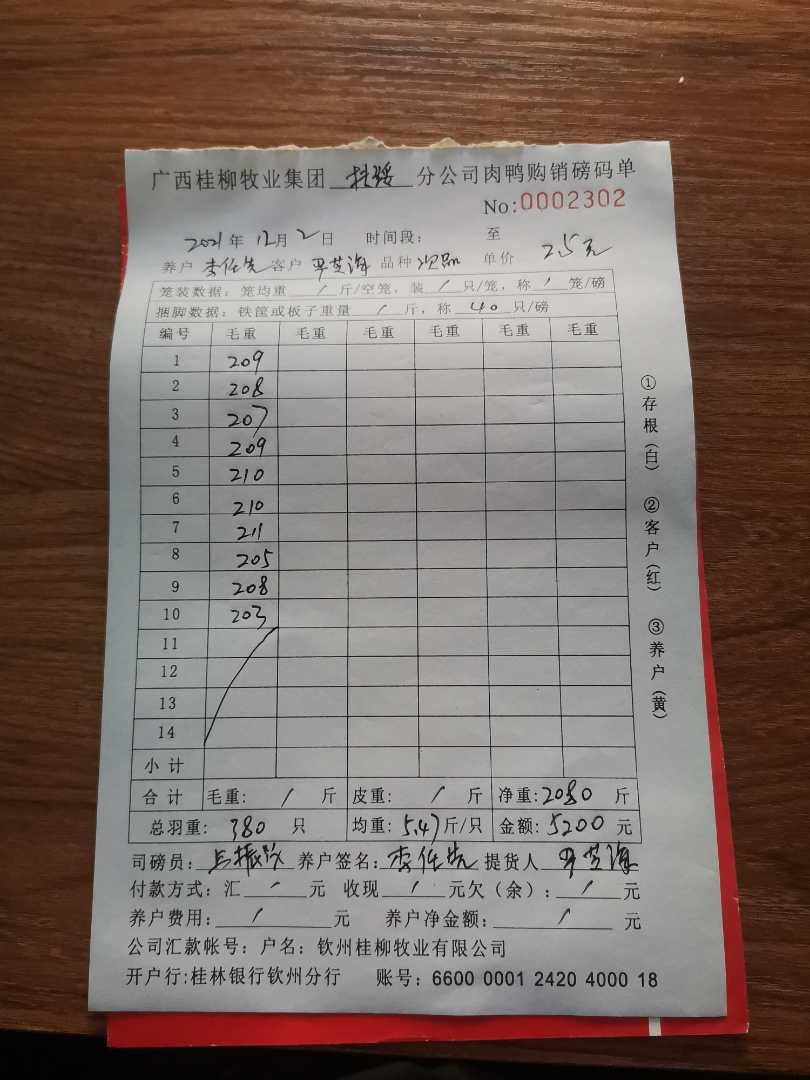 广西桂柳牧业集团 扶绥 分公司肉鸭购销磅码单
No:0002302
2021年12月2日 时间段: 至
养户 李任先 客户 品种 次品 单价 2.5元
笼装数据: 笼均重 / 斤/空笼, 装 / 只/笼, 称 / 笼/磅
捆脚数据: 铁筐或板子重量 / 斤, 称 40 只/磅
编号 毛重 毛重 毛重 毛重 毛重 毛重
1 209
2 208
3 207
4 209
5 210
6 210
7 211
8 205
9 208
10 203
11
12
13
14
小计
合计 毛重: / 斤 皮重: / 斤 净重: 2080 斤
总羽重: 380 只 均重: 5.47 斤/只 金额: 5200 元
司磅员: 养户签名: 李任先 提货人
付款方式: 汇 / 元 收现 / 元欠(余): / 元
养户费用: / 元 养户净金额: / 元
公司汇款帐号: 户名: 钦州桂柳牧业有限公司
开户行:桂林银行钦州分行 账号: 6600 0001 2420 4000 18
①存根(白) ②客户(红) ③养户(黄)